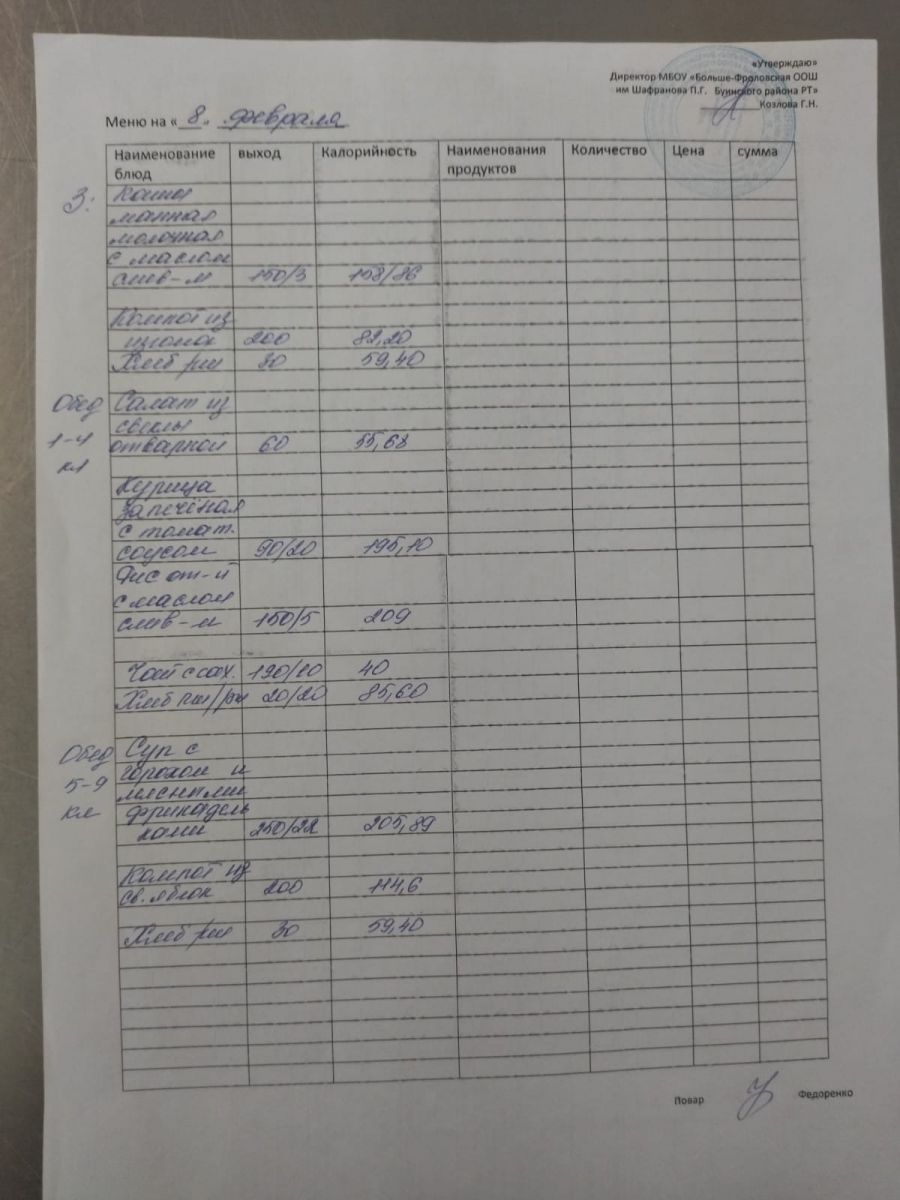 «Утверждаю»
Директор МБОУ «Больше-Фроловская ООШ
им Шафранова П.Г. Буинского района РТ»
Козлова Г.Н.
Меню на « 8 » февраля
Наименование блюд выход Калорийность Наименования продуктов Количество Цена сумма
З: Каша
манная
молочная
с маслом
слив-м 150/3 158/86
Компот из
изюма 200 82,20
Хлеб рж 30 59,40
Обед Салат из
свеклы
1-4 отварной 60 55,68
кл
Курица
запечёная
с томат.
соусом 90/20 195,10
Рис от-й
с маслом
слив-м 150/5 209
Чай с сах. 190/10 40
Хлеб пш/рж 20/20 85,60
Обед Суп с
горохом и
5-9 мясными
кл фрикадель
ками 250/22 205,89
Компот из
св. яблок 200 114,6
Хлеб рж 30 59,40
Повар Федоренко